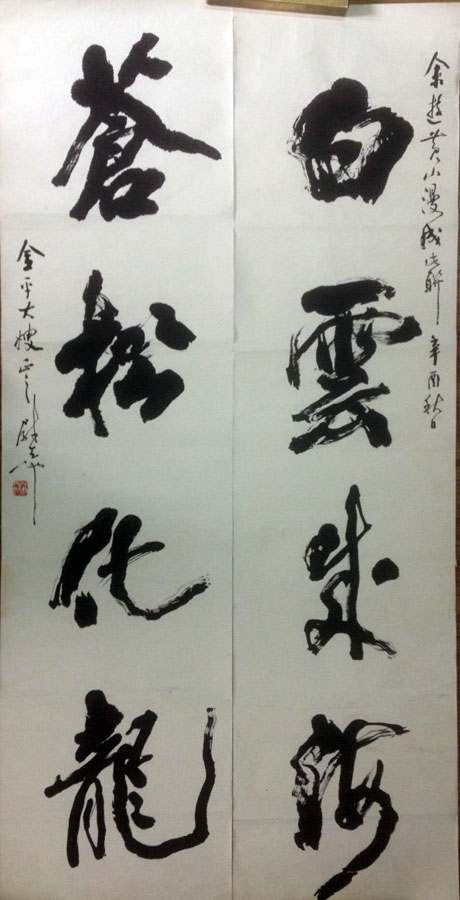 余遊黄山漫成此聯 辛酉秋日
白雲成海
蒼松化龍
金平大嫂正之